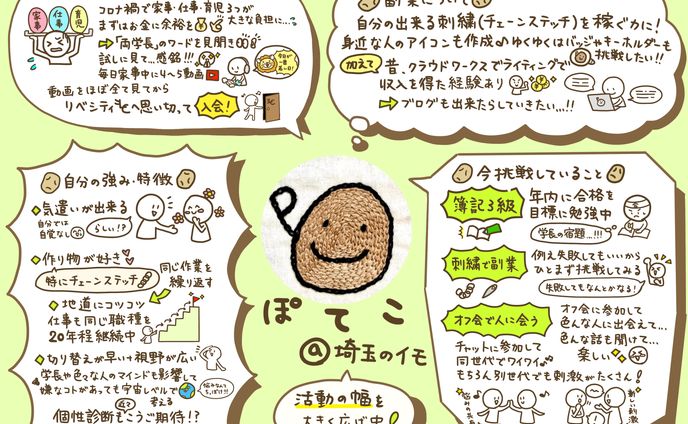 家事
仕事
育児
コロナ禍で家事・仕事・育児3つが
大きな負担に…
まずはお金に余裕を
⇨「両学長」のワードを見聞き
試しに見て…感銘!!!
毎日家事中に4〜5動画
動画をほぼ全て見てから
リベシティへ思い切って入会!
副業について
自分の出来る刺繍(チェーンステッチ)を稼ぐ力に!
身近な人のアイコンも作成♪ゆくゆくはバッジやキーホルダーも
挑戦したい!!
加えて
昔、クラウドワークスでライティングで
収入を得た経験あり
⇨ブログも出来たらしていきたい…!!
自分の強み・特徴
気遣いが出来る
自分では
自覚なし
らしい!?
作り物が好き
特にチェーンステッチ
同じ作業を
繰り返す
地道にコツコツ
仕事も同じ職種を
20年程継続中
切り替えが早い+視野が広い
学長や色々な人のマインドも影響して
嫌なコトがあっても宇宙レベルで
考える
悩みなんて
ちっぽけ!!
個性診断もこうご期待!?
ぽてこ
@埼玉のイモ
活動の幅を
大きく広げ中!
今挑戦していること
簿記3級
年内に合格を
目標に勉強中
学長の宿題…!!!
刺繍で副業
例え失敗してもいいから
ひとまず挑戦してみる
失敗してもなんとかなる!
オフ会で人に会う
オフ会に参加して
色んな人に出会えて…
色んな話も聞けて…
楽しい
チャットに参加して
同世代でワイワイ
もちろん別世代でも刺激がたくさん!
新しい刺激